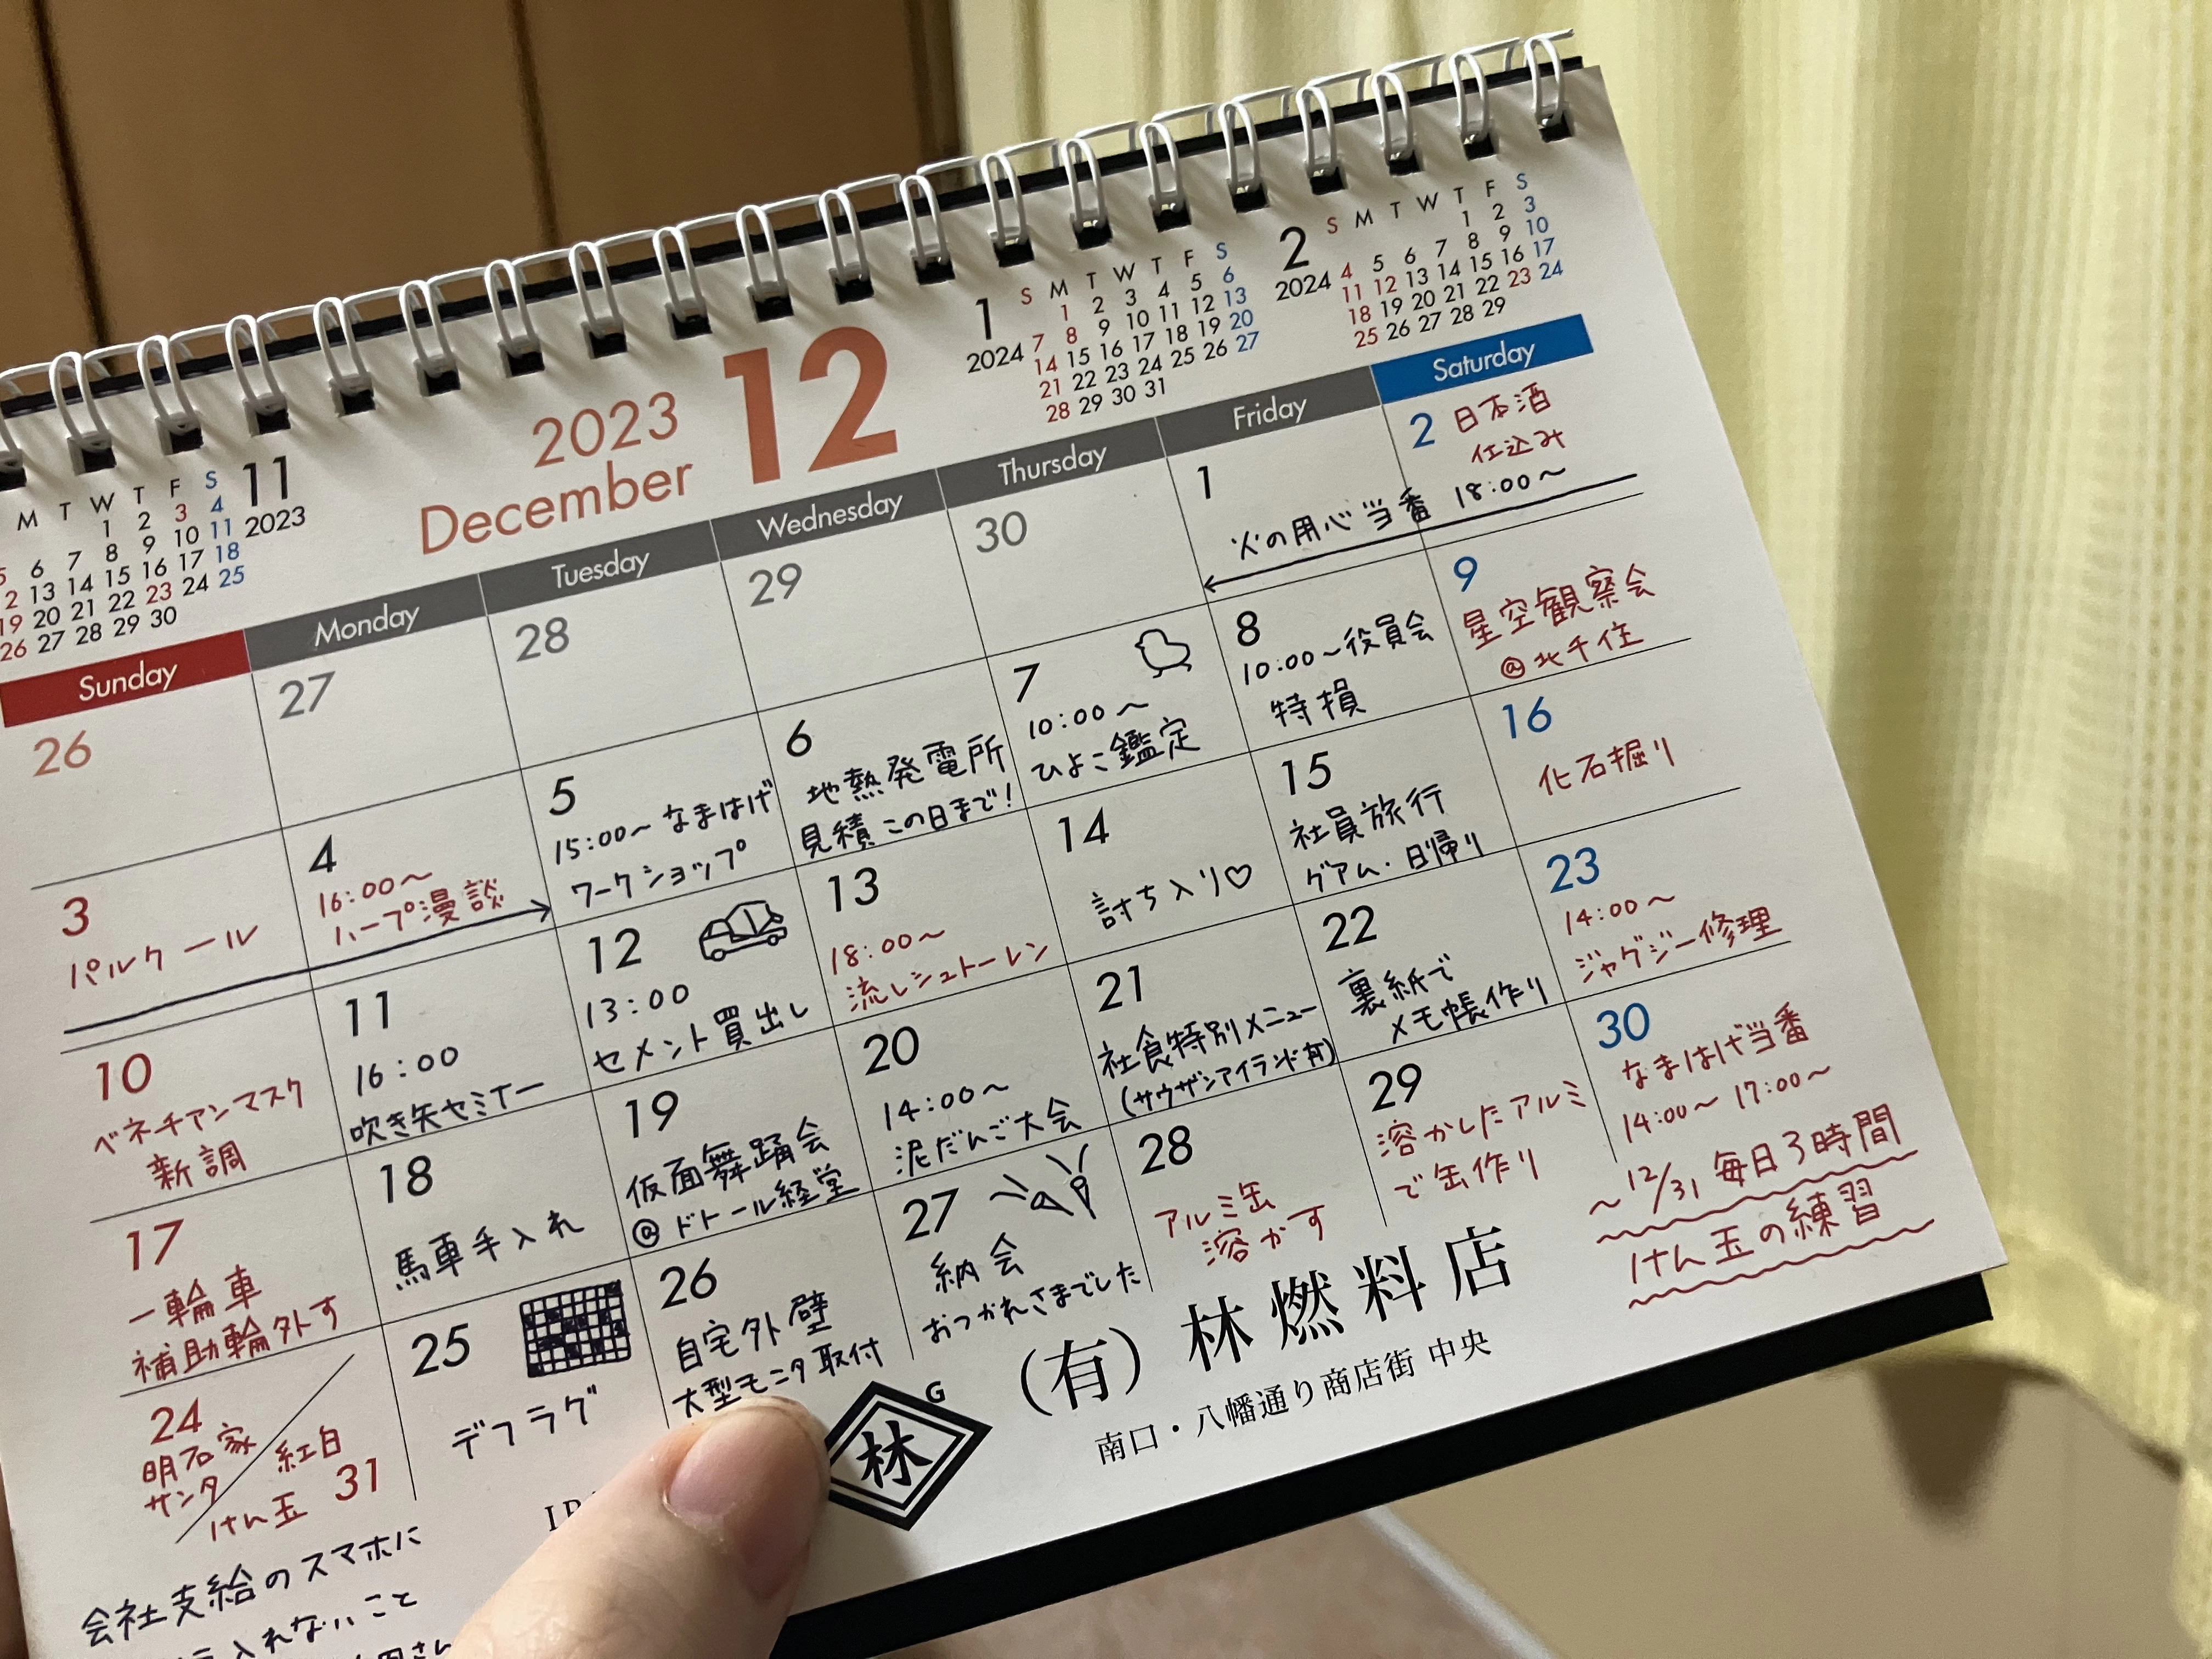 11
2023
M T W T F S
1 2 3 4
5 6 7 8 9 10 11
2 13 14 15 16 17 18
19 20 21 22 23 24 25
26 27 28 29 30
2023
December
12
1
2024
S M T W T F S
1 2 3 4 5 6
7 8 9 10 11 12 13
14 15 16 17 18 19 20
21 22 23 24 25 26 27
28 29 30 31
2
2024
S M T W T F S
1 2 3
4 5 6 7 8 9 10
11 12 13 14 15 16 17
18 19 20 21 22 23 24
25 26 27 28 29
Sunday Monday Tuesday Wednesday Thursday Friday Saturday
26
27
28
29
30
1
火の用心当番 18:00〜
2 日本酒
仕込み
3
パルクール
4
16:00〜
ハープ漫談
5
15:00〜 なまはげ
ワークショップ
6
地熱発電所
見積 この日まで!
7
10:00〜
ひよこ鑑定
8
10:00〜役員会
特損
9
星空観察会
@北千住
10
ベネチアンマスク
新調
11
16:00
吹き矢セミナー
12
13:00
セメント買出し
13
18:00〜
流しシュトーレン
14
討ち入り♡
15
社員旅行
グアム・日帰り
16
化石掘り
17
一輪車
補助輪外す
18
馬車手入れ
19
仮面舞踊会
@ドトール経堂
20
14:00〜
泥だんご大会
21
社食特別メニュー
(サウザンアイランド有)
22
裏紙で
メモ帳作り
23
14:00〜
ジャグジー修理
24
明石家
サンタ
紅白
31
けん玉
25
デフラグ
26
自宅外壁
大型モニタ取付
27
納会
おつかれさまでした
28
アルミ缶
溶かす
29
溶かしたアルミ
で缶作り
30
なまはげ当番
14:00〜 17:00〜
〜12/31 毎日3時間
けん玉の練習
会社支給のスマホに
入れないこと
さん
G
林
(有)林燃料店
南口・八幡通り商店街 中央